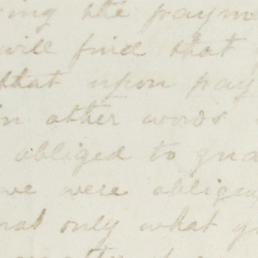 ring the paym
will find that
that upon pay
in other words
obliged to gua
we were oblige
only what y